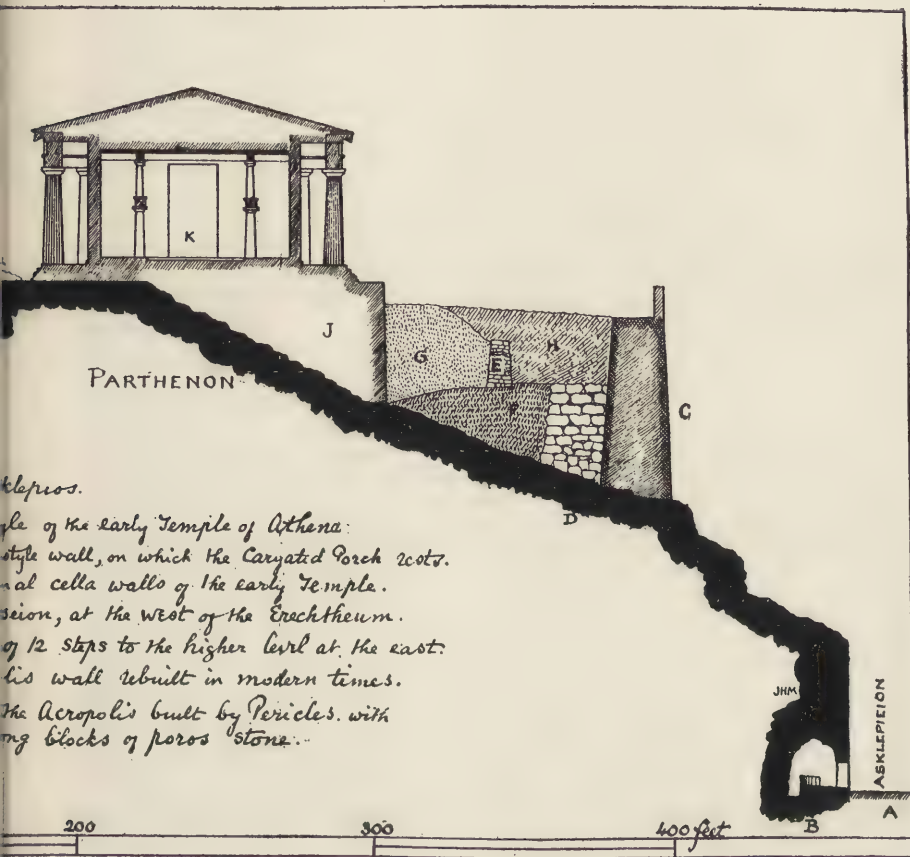 K
J
G
E
H
F
C
PARTHENON
D
klepios.
gle of the early Temple of Athena:
style wall, on which the Caryatid Porch rests.
nal cella walls of the early Temple.
seion, at the west of the Erechtheum.
of 12 steps to the higher level at the east.
lis wall rebuilt in modern times.
the Acropolis built by Pericles. with
ng blocks of poros stone.
JHM
ASKLEPIEION
A
B
200
300
400 feet